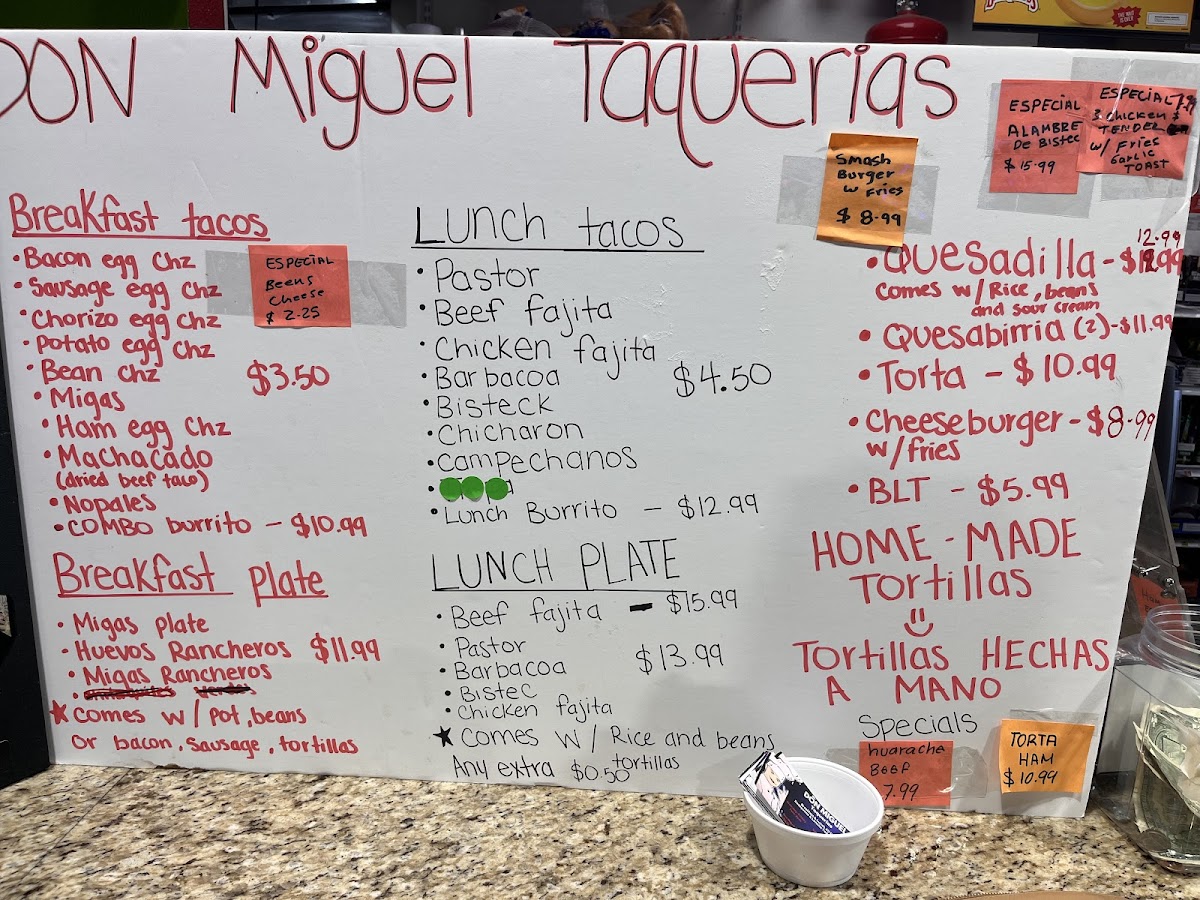 DON Miguel Taquerias
ESPECIAL
ALAMBRE
De Bistec
$15.99
ESPECIAL 7.99
3 Chicken $
TENDER
w/ Fries
Garlic
TOAST
Smash
Burger
w Fries
$8.99
Breakfast tacos
•Bacon egg Chz
•Sausage egg Chz
•Chorizo egg Chz
•Potato egg Chz
•Bean Chz
•Migas
•Ham egg Chz
•Machacado
(dried beef taco)
•Nopales
•COMBO burrito - $10.99
$3.50
ESPECIAL
Beens
Cheese
$2.25
Breakfast Plate
• Migas plate
• Huevos Rancheros $11.99
• Migas Rancheros
★ Comes w/ Pot, beans
or bacon, sausage, tortillas
Lunch tacos
•Pastor
•Beef fajita
•Chicken fajita
•Barbacoa
•Bisteck
•Chicharon
•Campechanos
•Lunch Burrito - $12.99
$4.50
LUNCH PLATE
•Beef fajita - $15.99
•Pastor
•Barbacoa
•Bistec
•Chicken fajita
$13.99
★ Comes w/ Rice and beans
Any extra $0.50 tortillas
12.99
•Quesadilla - $
comes w/ Rice, beans
and sour cream
•Quesabirria (2) - $11.99
•Torta - $10.99
•Cheeseburger - $8.99
w/fries
•BLT - $5.99
HOME-MADE
Tortillas
Tortillas HECHAS
A MANO
Specials
huarache
BEEF
7.99
TORTA
HAM
$10.99
DON MIGUEL